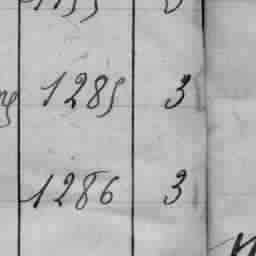 1285 3
1286 3